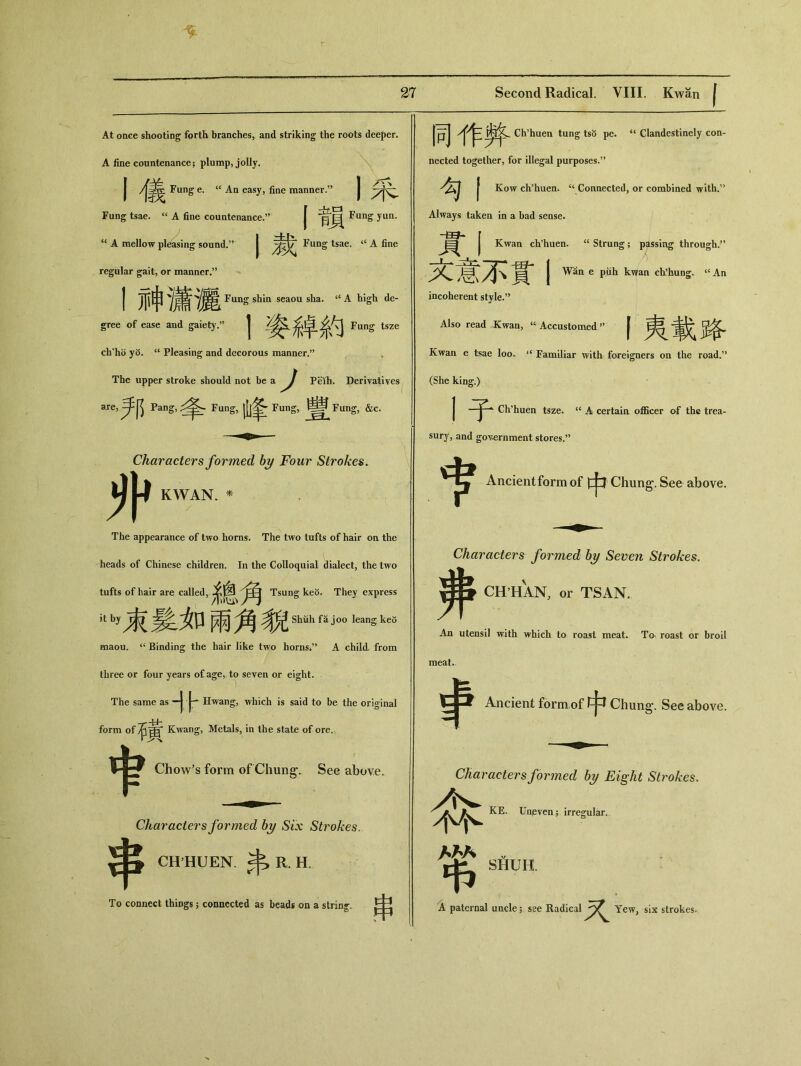 27 Second Radical. VIII. Kwăn 丨
At once shooting forth branches, and striking the roots deeper.
A fine countenance; plump, jolly.
丨儀 Fung e. “ An easy, fine manner.” 丨采
Fung tsae. “ A fine countenance.” 丨韻 Fung yun.
“ A mellow pleasing sound.” 丨裁 Fung tsae. “ A fine
regular gait, or manner.”
丨神瀟灑 Fung shin seaou sha. “ A high de-
gree of ease and gaiety.” 丨姿綽約 Fung tsze
ch'hŏ yŏ. “ Pleasing and decorous manner.”
The upper stroke should not be a 丿 Pëĭh. Derivatives
are, 邦 Pang, 夆 Fung, 峰 Fung, 豐 Fung, &c.
Characters formed by Four Strokes.
丱 KWAN. *
The appearance of two horns. The two tufts of hair on the
heads of Chinese children. In the Colloquial dialect, the two
tufts of hair are called, 總角 Tsung keŏ. They express
it by 束髮如兩角貌 Shŭh fă joo leang keŏ
maou. “ Binding the hair like two horns.” A child from
three or four years of age, to seven or eight.
The same as Hwang, which is said to be the original
form of 礦 Kwang, Metals, in the state of ore.
Chow's form of Chung. See above.
Characters formed by Six Strokes.
串 CH'HUEN. R. H.
To connect things; connected as beads on a string. 串
同作弊 Ch'huen tung tsŏ pe. “ Clandestinely con-
nected together, for illegal purposes.”
勾丨 Kow ch'huen. “ Connected, or combined with.”
Always taken in a bad sense.
貫丨 Kwan ch'huen. “ Strung; passing through.”
文意不貫丨 Wăn e pŭh kwan ch'hung. “ An
incoherent style.”
Also read Kwan, “ Accustomed ” 丨夷載路
Kwan e tsae loo. “ Familiar with foreigners on the road.”
(She king.)
丨子 Ch'huen tsze. “ A certain officer of the trea-
sury, and government stores.”
Ancient form of 中 Chung. See above.
Characters formed by Seven Strokes.
CH'HĂN, or TSAN.
An utensil with which to roast meat. To roast or broil
meat.
Ancient form of 中 Chung. See above.
Characters formed by Eight Strokes.
KE. Uneven; irregular.
SHUH.
A paternal uncle; see Radical 又 Yew, six strokes.